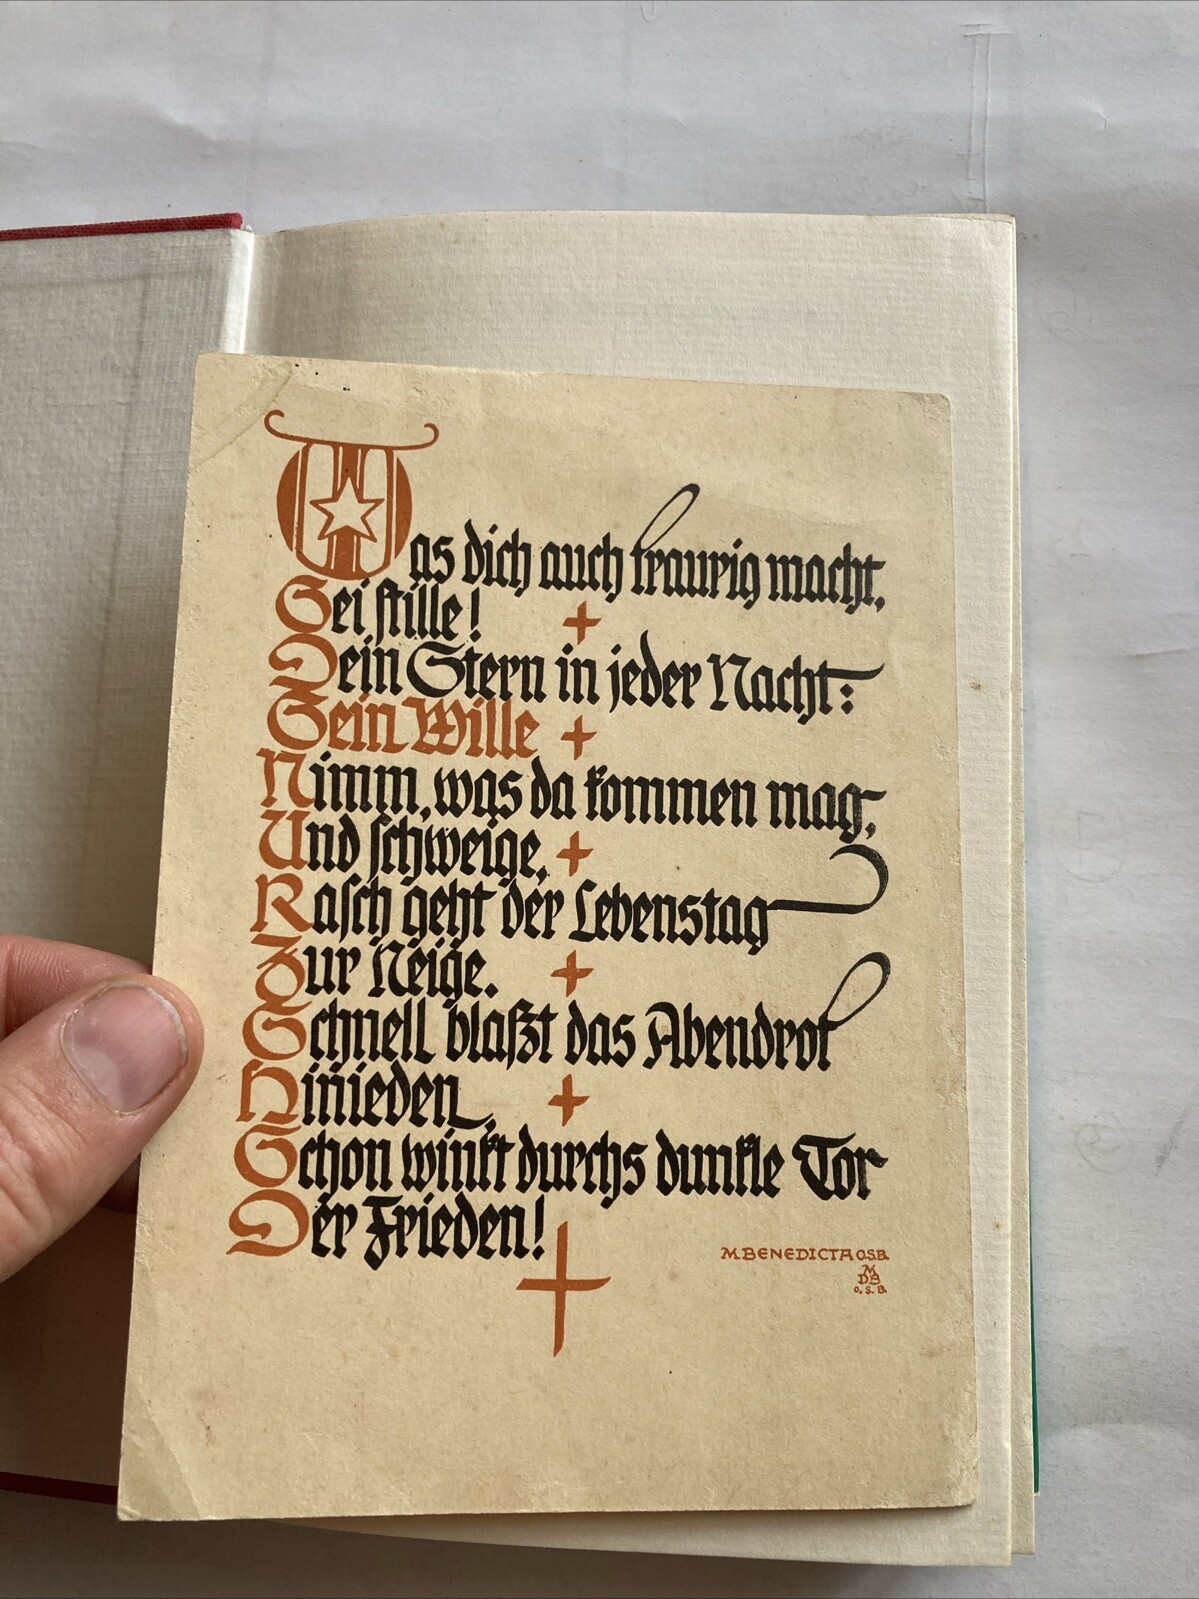 Was dich auch traurig macht,
Sei stille!
Dein Stern in jeder Nacht:
Sein Wille
Nimm, was da kommen mag,
Und schweige,
Rasch geht der Lebenstag
Zur Neige.
Schnell blaßt das Abendrot
Hinieden,
Schon winkt durchs dunkle Tor
Der Frieden!
M.BENEDICTA O.S.B.
M
DB
O.S.B.